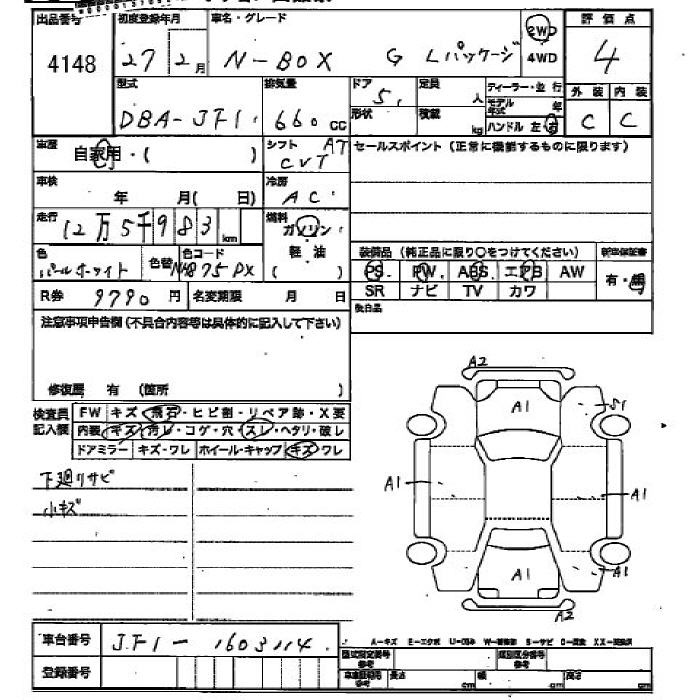 出品番号 初度登録年月 車名・グレード 2WD 4WD 評価点
4148 27 2月 N-BOX G Lパッケージ 4
型式 排気量 ドア 定員 ディーラー・並行 外装 内装
DBA-JF1 660cc 5 人 モデル年式 年 C C
形状 積載 kg ハンドル 左・右
車歴 自家用・( ) シフト AT CVT セールスポイント (正常に機能するものに限ります)
車検 年 月(日) 冷房 AC
走行 12万5千983km 燃料 ガソリン・軽油( )
色 パールホワイト 色替 色コード NH875PX 装備品 (純正品に限り○をつけてください) 新車保証書
PS PW ABS エアB AW 有・無
R券 9790円 名変期限 月 日 SR ナビ TV カワ
注意事項申告欄 (不具合内容等は具体的に記入して下さい) 後日品
修復歴 有 (箇所 )
検査員記入欄 FW キズ・飛石・ヒビ割・リペア跡・X要
内装 キズ・汚レ・コゲ・穴・スレ・ヘタリ・破レ
ドアミラー キズ・ワレ ホイール・キャップ キズ・ワレ
下廻りサビ
小キズ
A2
A1 S1
A1 A1
A1 A1
A2
車台番号 JF1-1603114
A-キズ E-エクボ U-凹み W-補修跡 S-サビ C-腐食 XX-交換済
登録番号 型式指定番号 参考 類別区分番号 参考
長さ cm 幅 cm 高さ cm